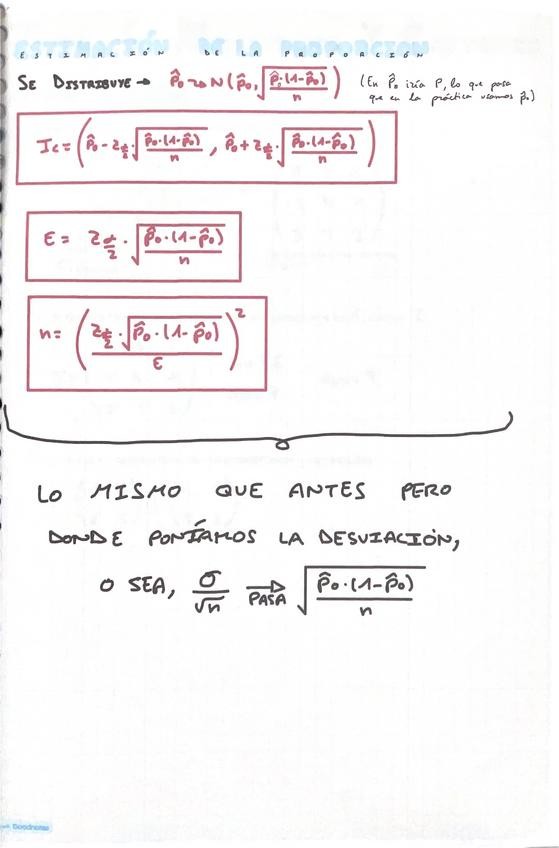 ESTIMACIÓN DE LA PROPORCIÓN
SE DISTRIBUYE → p̂₀ ~> N(p̂₀, √(p̂·(1-p̂₀)/n)) (En p̂₀ iría P, lo que pasa
que en la práctica usamos p̂₀)
Ic = (p̂₀ - z_{α/2}·√(p̂₀·(1-p̂₀)/n), p̂₀ + z_{α/2}·√(p̂₀·(1-p̂₀)/n))
E = z_{α/2} · √(p̂₀·(1-p̂₀)/n)
n = (z_{α/2}·√(p̂₀·(1-p̂₀))/E)²
LO MISMO QUE ANTES PERO
DONDE PONÍAMOS LA DESVIACIÓN,
O SEA, σ/√n PASA → √(p̂₀·(1-p̂₀)/n)
Goodnotes